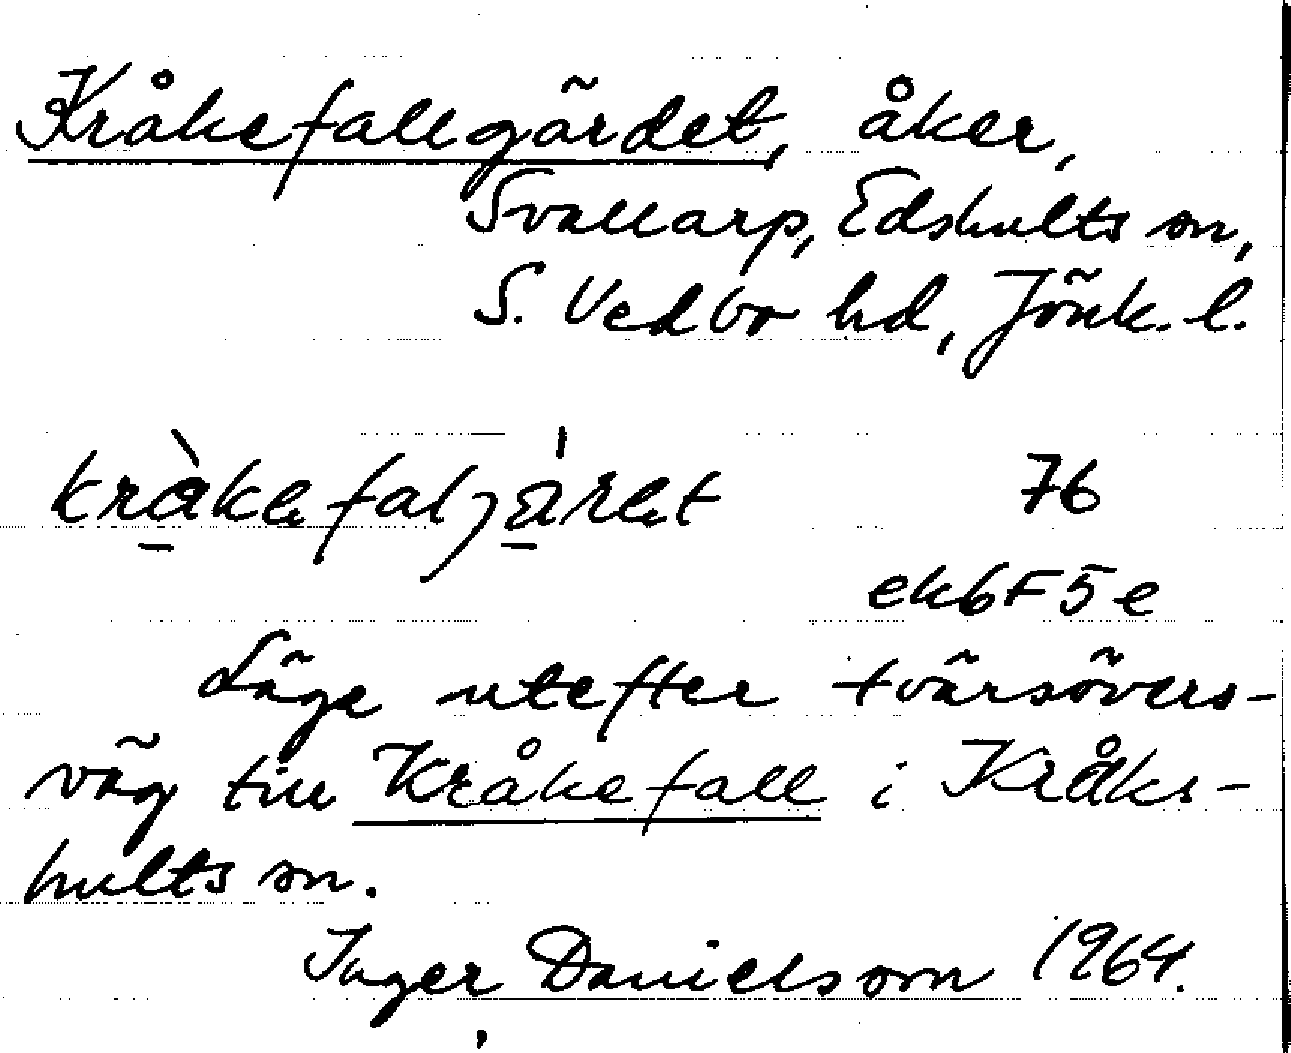 Kråkefallgärdet, åker,
Svallarp, Edshults sn,
S. Vedbo hd, Jönk. l.
kràkefalj́aret 76
ek6F5e
Läge utefter tvärsövers-
väg till Kråkefall i Kråks-
hults sn.
Inger Danielsson 1964.